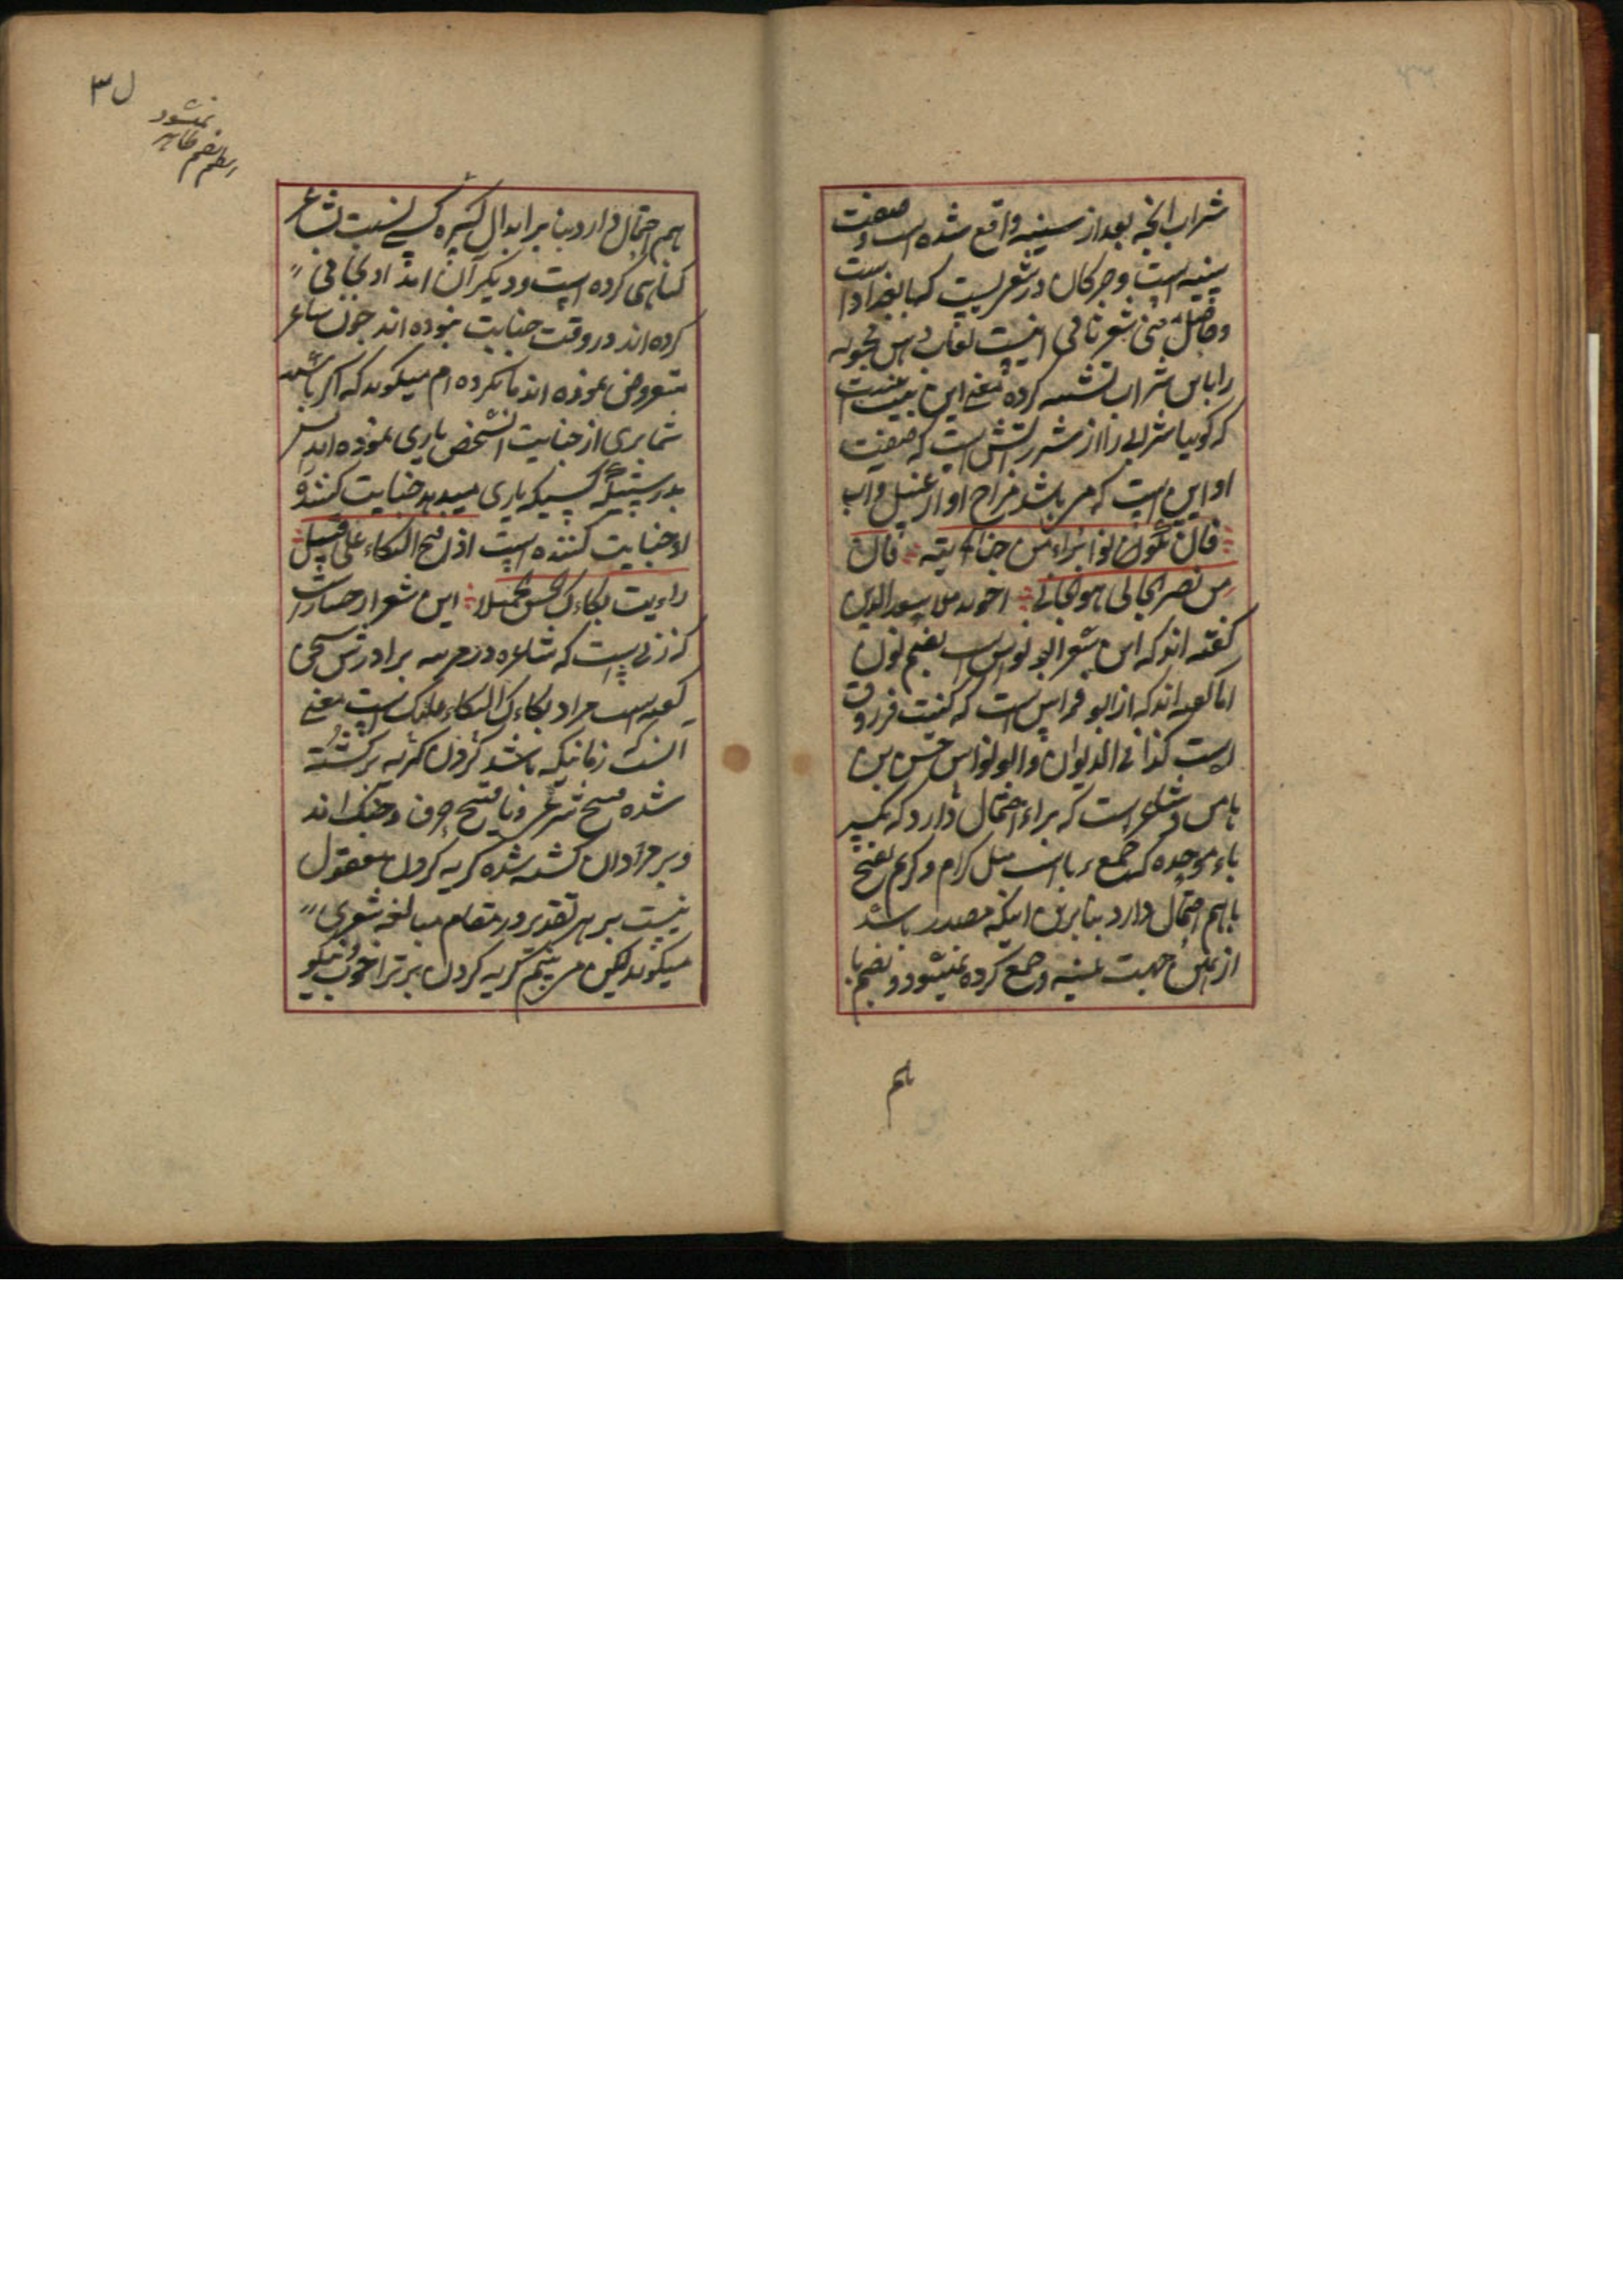 شراب آنچه بعد از سینیه واقع شده است و صفت
سینیه است و خبر کان در شعر بیت که ما بعد او است
و حاصل معنی شعر ثانی اینست لعاب دهن محبوبه
را باین شراب تشبیه کرده معنی این بیت اینست
که گویا شرابی را از شر راتش است که صفت
او این است که می باشد مزاج او از عسل و اب
فان تکونوا براء من جنایته فان
من نصر الجانی هو الجانی اخوند ملا سعد الدین
گفته اند که این شعر ابو نواس است بضم نون
اما گفته اند که از ابو فراس است که کنیت فرزوق
است کذا فی الدیوان و ابو نواس حسن بن
هانی شاعر است که براء احتمال دارد که بکسر
باء موحده که جمع باشد مثل کرام و کریم بفتح
با هم احتمال دارد بنا برین اینکه مصدر باشد
از این جهت تثنیه و جمع کرده نمیشود و بضم با
هم
ل ۳
نمیشود
بضم ظاهر
هم احتمال دارد بنا بر ابدال کسره کسی نسبت بشاعر
گناهی کرده است و دیگر آن امداد بجانی
کرده اند در وقت جنایت نبوده اند چون شاعر
متعرض نموده اند ما نکرده ام میگوید که اگر باشید
شما بری از جنایت انشخص یاری نموده اند پس
بدرستیکه کسیکه یاری میدهد جنایت کننده
او جنایت کننده است اذا قبح البکاء علی قتیل
رایت بکاءک الحسن الجمیلا این شعر از خنساء است
که زنی است که شاعره در مرثیه برادرش صخر
گفته است مراد بکاءک البکاء علیک است معنی
آنست که زمانیکه باشد کردن گریه بر کشته
شده قبیح شرعی و یا قبیح عرف و جنگ اند
و بر مردان کشته شده گریه کردن معقول
نیست بر هر تقدیر در مقام مبالغه شعری
میگوید لیکن می بینم گریه کردن بر ترا خوب نیکو